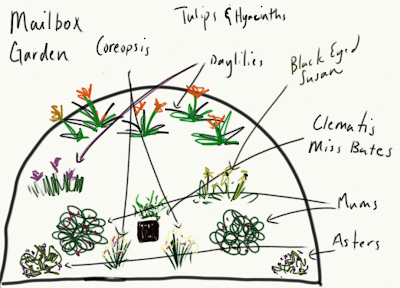 Mailbox
Garden
Tulips & Hyacinths
Coreopsis
Daylilies
Black Eyed
Susan
Clematis
Miss Bates
Mums
Asters